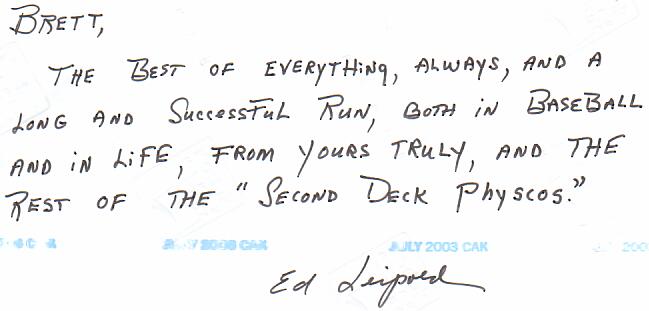 BRETT,
THE BEST OF EVERYTHING, ALWAYS, AND A
LONG AND SUCCESSFUL RUN, BOTH IN BASEBALL
AND IN LIFE, FROM YOURS TRULY, AND THE
REST OF THE "SECOND DECK PHYSCOS."
JULY 2003 CAK
Ed